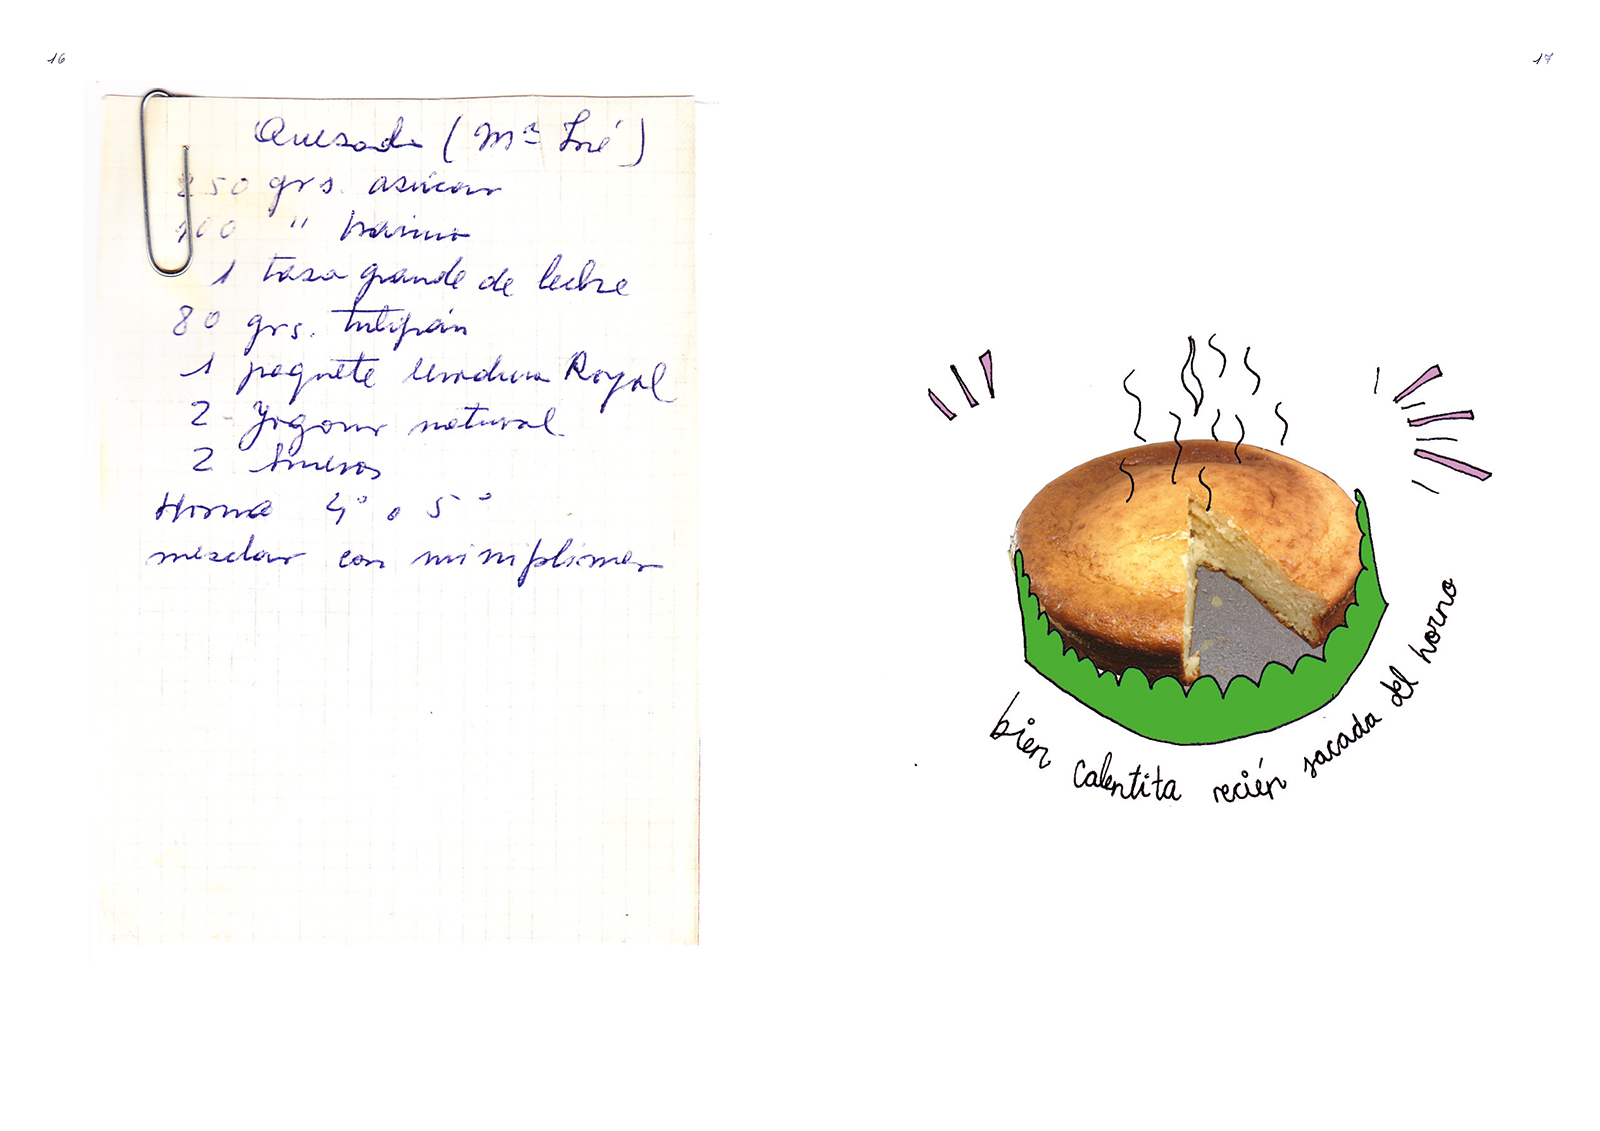 16
17
Quesada (Mª José)
250 grs. asúcar
100 " harina
1 tasa grande de leche
80 grs. tulipán
1 paquete levadura Royal
2 Yogour natural
2 huevos
Horno 4º o 5º
mesclar con miniplimer
bien calentita recién sacada del horno